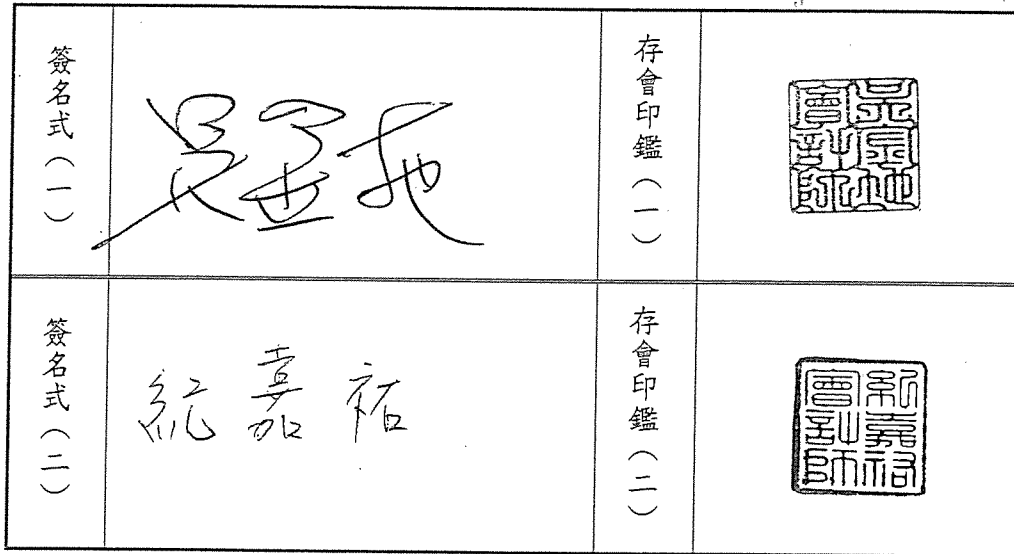 簽名式（一）
吳
存會印鑑（一）
會計師
簽名式（二）
紀嘉祐
存會印鑑（二）
紀嘉祐
會計師